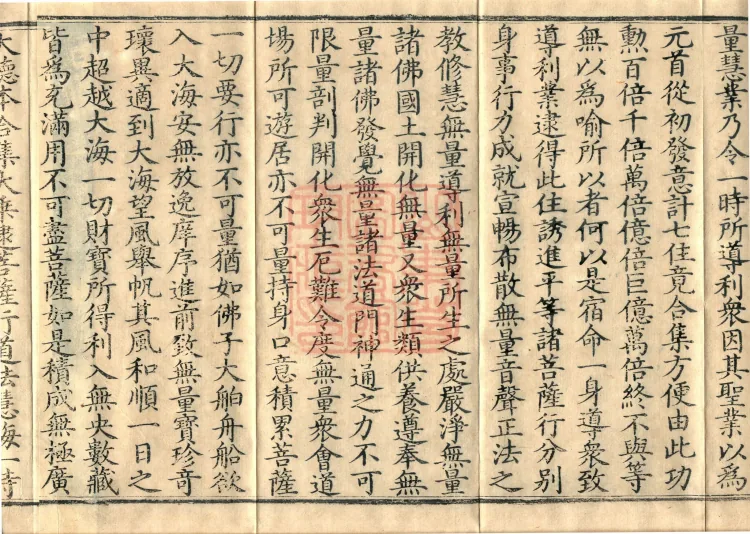 量慧業乃令一時所導利衆因其聖業以為
元首從初發意計七住竟合集方便由此功
勲百倍千倍萬倍億倍巨億萬倍終不與等
無以為喻所以者何以是宿命一身導衆致
導利業逮得此住誘進平等諸菩薩行分别
身事行力成就宣暢布散無量音聲正法之
教修慧無量導利無量所生之處嚴淨無量
諸佛國土開化無量又衆生類供養遵奉無
量諸佛發覺無量諸法道門神通之力不可
限量剖判開化衆生厄難令度無量衆會道
場所可遊居亦不可量持身口意積累菩薩
一切要行亦不可量猶如佛子大舶舟船欲
入大海安無放逸庠序進前致無量寶珍奇
瓌異適到大海望風舉帆其風和順一日之
中超越大海一切財寶所得利入無央數藏
皆為充滿用不可盡菩薩如是積成無極廣
大德本合集大乗逮菩薩行道法慧海一時